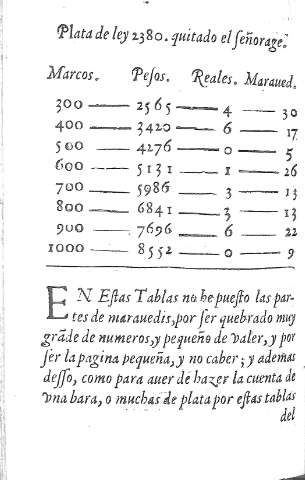 Plata de ley 2380. quitado el señorage.
Marcos. Pesos. Reales. Maraued.
300 — 2565 — 4 — 30
400 — 3420 — 6 — 17
500 — 4276 — 0 — 5
600 — 5131 — 1 — 26
700 — 5986 — 3 — 13
800 — 6841 — 3 — 13
900 — 7696 — 6 — 22
1000 — 8552 — 0 — 9
EN Estas Tablas no he puesto las par-
tes de marauedis, por ser quebrado muy
grãde de numeros, y pequeño de valer, y por
ser la pagina pequeña, y no caber; y ademas
desso, como para auer de hazer la cuenta de
vna bara, o muchas de plata por estas tablas
del